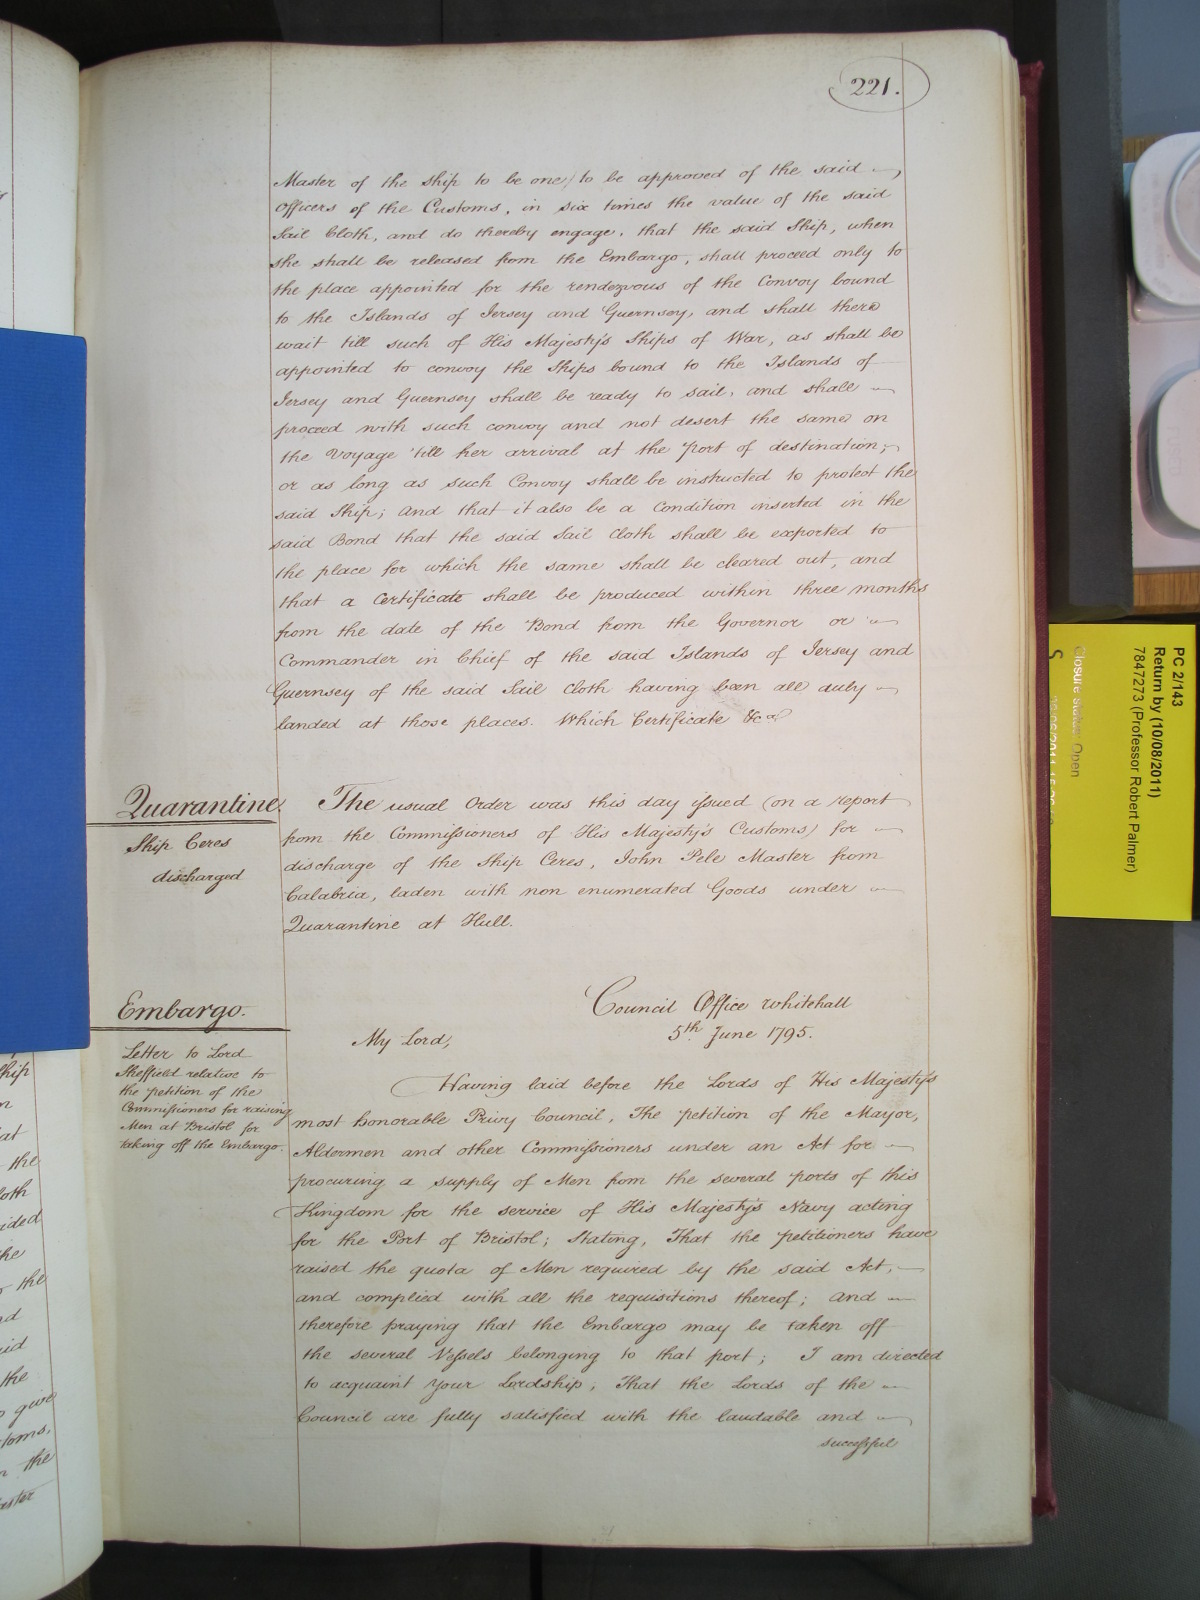 221.
Master of the Ship to be one) to be approved of the said
Officers of the Customs, in six times the value of the said
Sail Cloth, and do thereby engage, that the said Ship, when
she shall be released from the Embargo, shall proceed only to
the place appointed for the rendezvous of the Convoy bound
to the Islands of Jersey and Guernsey, and shall there
wait till such of His Majesty's Ships of War, as shall be
appointed to convoy the Ships bound to the Islands of
Jersey and Guernsey shall be ready to sail, and shall
proceed with such convoy and not desert the same on
the Voyage 'till her arrival at the Port of destination;
or as long as such Convoy shall be instructed to protect the
said Ship; And that it also be a Condition inserted in the
said Bond that the said Sail Cloth shall be exported to
the place for which the same shall be cleared out, and
that a Certificate shall be produced within three months
from the date of the Bond from the Governor or
Commander in Chief of the said Islands of Jersey and
Guernsey of the said Sail Cloth having been all duly
landed at those places. Which Certificate &ca
Quarantine
Ship Ceres
discharged
The usual Order was this day issued (on a report
from the Commissioners of His Majesty's Customs) for
discharge of the Ship Ceres, John Pele Master from
Calabria, laden with non enumerated Goods under
Quarantine at Hull.
Embargo.
Letter to Lord
Sheffield relative to
the petition of the
Commissioners for raising
Men at Bristol for
taking off the Embargo.
Council Office Whitehall
5th June 1795.
My Lord,
Having laid before the Lords of His Majesty's
most honorable Privy Council, The petition of the Mayor,
Aldermen and other Commissioners under an Act for
procuring a supply of Men from the several ports of this
Kingdom for the service of His Majesty's Navy acting
for the Port of Bristol; Stating, That the petitioners have
raised the quota of Men required by the said Act,
and complied with all the requisitions thereof; And
therefore praying that the Embargo may be taken off
the several Vessels belonging to that port; I am directed
to acquaint Your Lordship, That the Lords of the
Council are fully satisfied with the laudable and
successful
PC 2/143
Return by (10/08/2011)
7847273 (Professor Robert Palmer)
Closure status: Open
S